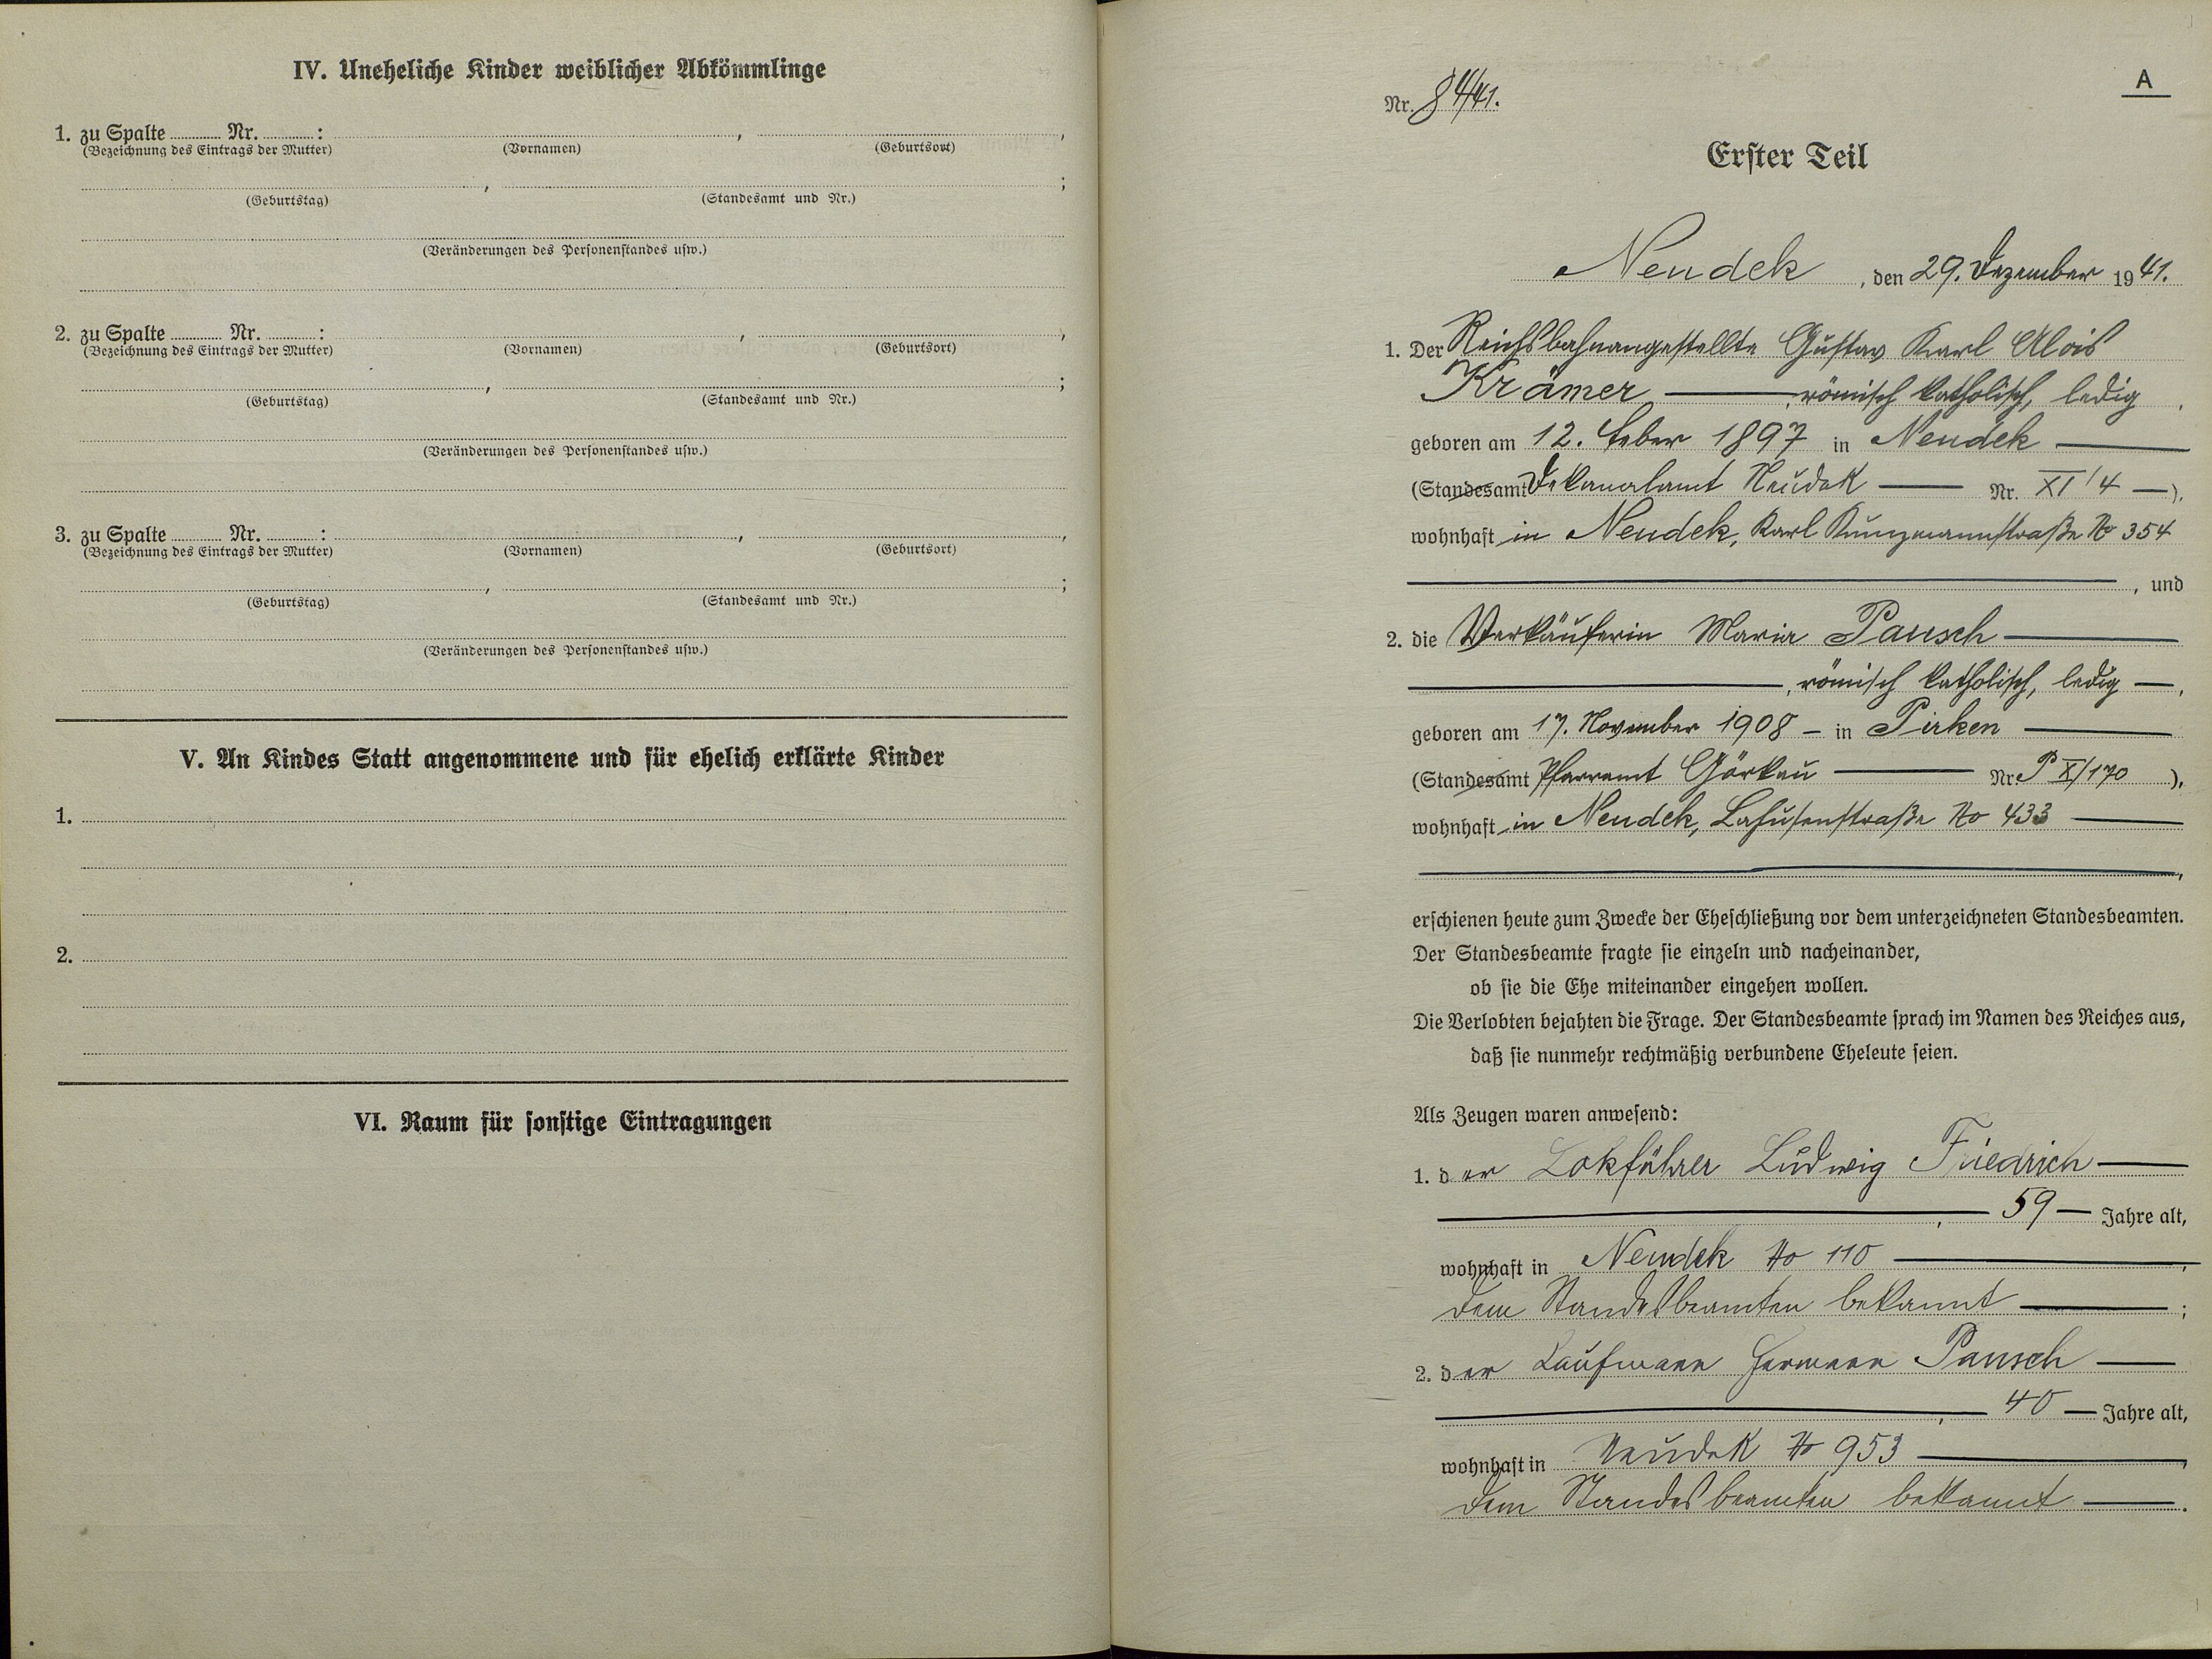 IV. Uneheliche Kinder weiblicher Abkömmlinge
1. zu Spalte ........ Nr. ........ : , ,
(Bezeichnung des Eintrags der Mutter) (Vornamen) (Geburtsort)
, ;
(Geburtstag) (Standesamt und Nr.)
(Veränderungen des Personenstandes usw.)
2. zu Spalte ........ Nr. ........ : , ,
(Bezeichnung des Eintrags der Mutter) (Vornamen) (Geburtsort)
, ;
(Geburtstag) (Standesamt und Nr.)
(Veränderungen des Personenstandes usw.)
3. zu Spalte ........ Nr. ........ : , ,
(Bezeichnung des Eintrags der Mutter) (Vornamen) (Geburtsort)
, ;
(Geburtstag) (Standesamt und Nr.)
(Veränderungen des Personenstandes usw.)
V. An Kindes Statt angenommene und für ehelich erklärte Kinder
1.
2.
VI. Raum für sonstige Eintragungen
A
Nr. 84/41.
Erster Teil
Neudek, den 29. Dezember 1941.
1. Der Reichsbahnangestellte Gustav Karl Alois
Krämer —, römisch katholisch, ledig,
geboren am 12. Feber 1897 in Neudek —
(Standesamt Dekanalamt Neudek — Nr. XI/4 —),
wohnhaft in Neudek, Karl Kunzmannstraße No 354
—, und
2. die Verkäuferin Maria Pausch —
—, römisch katholisch, ledig —,
geboren am 17. November 1908 — in Pirken —
(Standesamt Pfarramt Görkau — Nr. P X/170 ),
wohnhaft in Neudek, Lahusenstraße No 433 —
—,
erschienen heute zum Zwecke der Eheschließung vor dem unterzeichneten Standesbeamten.
Der Standesbeamte fragte sie einzeln und nacheinander,
ob sie die Ehe miteinander eingehen wollen.
Die Verlobten bejahten die Frage. Der Standesbeamte sprach im Namen des Reiches aus,
daß sie nunmehr rechtmäßig verbundene Eheleute seien.
Als Zeugen waren anwesend:
1. der Lokführer Ludwig Friedrich —
—, 59 — Jahre alt,
wohnhaft in Neudek No 110 —,
dem Standesbeamten bekannt —;
2. der Kaufmann Hermann Pausch —
—, 40 — Jahre alt,
wohnhaft in Neudek No 953 —,
dem Standesbeamten bekannt —.